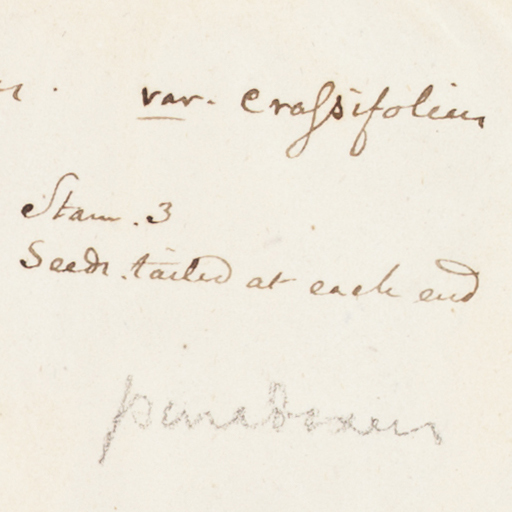 var. crassifolium
Stam. 3
Seeds tailed at each end